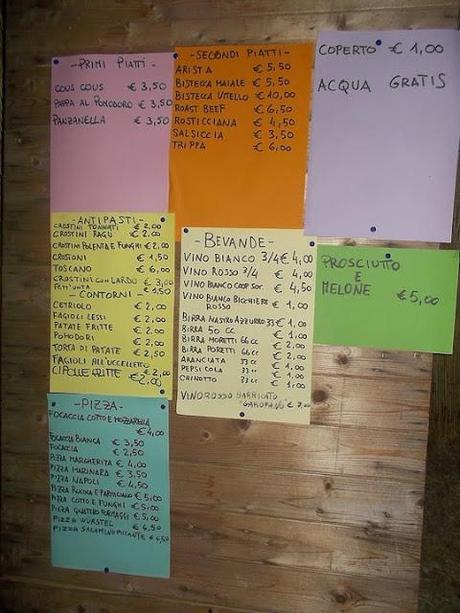 - PRIMI PIATTI -
COUS COUS € 3,50
PAPPA AL POMODORO € 3,50
PANZANELLA € 3,50
- SECONDI PIATTI -
ARISTA € 5,50
BISTECCA MAIALE € 5,50
BISTECCA VITELLO € 10,00
ROAST BEEF € 6,50
ROSTICCIANA € 4,50
SALSICCIA € 3,50
TRIPPA € 6,00
COPERTO € 1,00
ACQUA GRATIS
- ANTIPASTI -
CROSTINI TONNATI € 2,00
CROSTINI RAGÙ € 2,00
CROSTINI POLENTA E FUNGHI € 2,00
CROSTONI € 1,50
TOSCANO € 6,00
CROSTINI CON LARDO € 3,00
FETT'UNTA € 1,50
- CONTORNI -
CETRIOLO € 2,00
FAGIOLI LESSI € 2,00
PATATE FRITTE € 2,00
POMODORI € 2,00
TORTA DI PATATE € 2,50
FAGIOLI ALL'UCCELLETTO € 2,00
CIPOLLE FRITTE € 2,00
- BEVANDE -
VINO BIANCO 3/4 € 4,00
VINO ROSSO 3/4 € 4,00
VINO BIANCO COOP SOR. € 4,50
VINO BIANCO BICCHIERE € 1,00
ROSSO
BIRRA NASTRO AZZURRO 33 € 1,00
BIRRA 50 CC € 1,00
BIRRA MORETTI 66 cc € 2,00
BIRRA PORETTI 66 cc € 2,00
ARANCIATA 33 cc € 1,00
PEPSI COLA 33 cc € 1,00
CHINOTTO 33cc € 1,00
VINO ROSSO BARRICATO
"GAROFANO" € 7,00
PROSCIUTTO
E
MELONE € 5,00
- PIZZA -
FOCACCIA COTTO E MOZZARELLA
€ 4,00
FOCACCIA BIANCA € 3,50
FOCACCIA € 2,50
PIZZA MARGHERITA € 4,00
PIZZA MARINARA € 3,50
PIZZA NAPOLI € 4,50
PIZZA RUCOLA E PARMIGIANO € 5,00
PIZZA COTTO E FUNGHI € 5,00
PIZZA QUATTRO FORMAGGI € 5,00
PIZZA WURSTEL € 4,50
PIZZA SALAMINO PICCANTE € 4,50